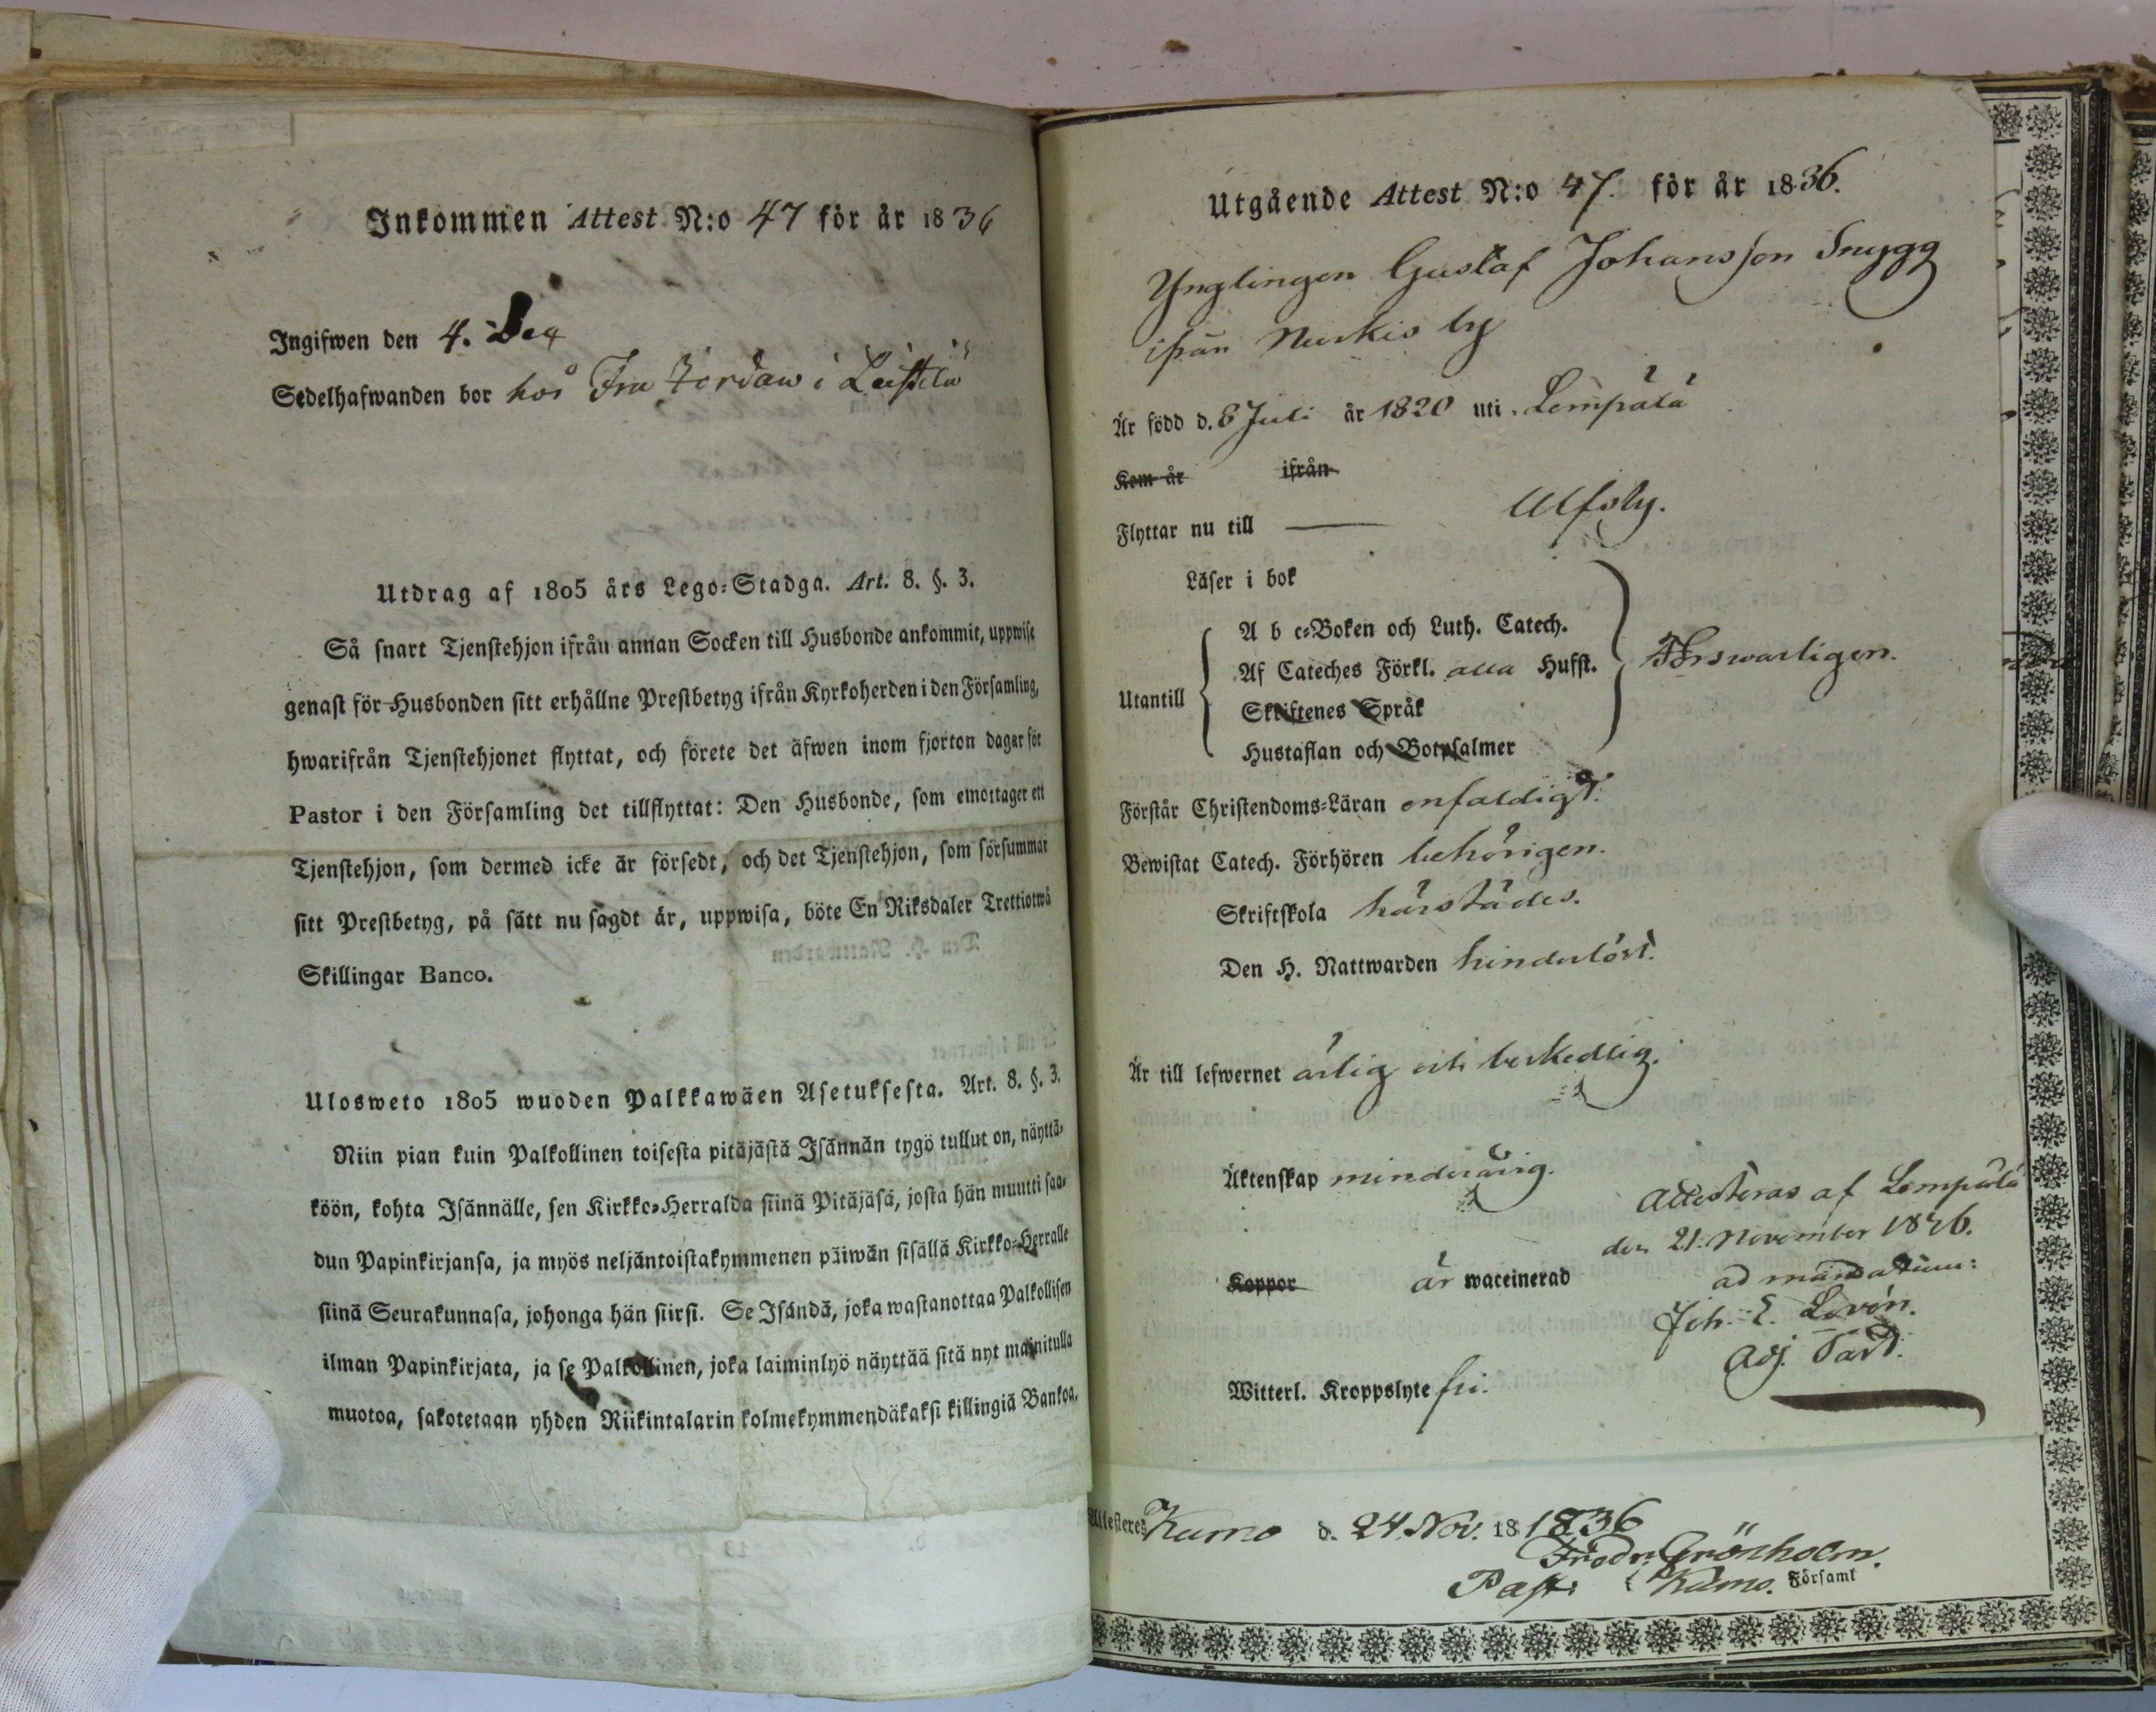 Inkommen Attest N:o 47 för år 1836
Ingifwen den 4. Dec
Sedelhafwanden bor hos Fru i Leistilä
Utdrag af 1805 års Lego-Stadga. Art. 8. §. 3.
Så snart Tjenstehjon ifrån annan Socken till Husbonde ankommit, uppwise
genast för Husbonden sitt erhållne Prestbetyg ifrån Kyrkoherden i den Församling,
hwarifrån Tjenstehjonet flyttat, och förete det äfwen inom fjorton dagar för
Pastor i den Församling det tillflyttat: Den Husbonde, som emottager ett
Tjenstehjon, som dermed icke är försedt, och det Tjenstehjon, som försummar
sitt Prestbetyg, på sätt nu sagdt är, uppwisa, böte En Riksdaler Trettiotwå
Skillingar Banco.
Ulosweto 1805 wuoden Palkkawäen Asetuksesta. Art. 8. §. 3.
Niin pian kuin Palkollinen toisesta pitäjästä Isännän tygö tullut on, näyttä-
köön, kohta Isännälle, sen Kirkko-Herralda siinä Pitäjäsä, josta hän muutti saa-
dun Papinkirjansa, ja myös neljäntoistakymmenen päiwän sisällä Kirkko-Herralle
siinä Seurakunnasa, johonga hän siirsi. Se Isändä, joka wastanottaa Palkollisen
ilman Papinkirjata, ja se Palkollinen, joka laiminlyö näyttää sitä nyt mainitulla
muotoa, sakotetaan yhden Riikintalarin kolmekymmendäkaksi killingiä Bankoa.
Utgående Attest N:o 47. för år 1836.
Ynglingen Gustaf Johansson Snygg
ifrån Nurkis by
Är född d. 8 Juli år 1820 uti Lempälä
Kom år ifrån
Flyttar nu till — Ulfsby.
Läser i bok
A b c-Boken och Luth. Catech.
Af Cateches Förkl. alla Hufst. Förswarligen.
Utantill
Skriftenes Språk
Hustaflan och Botpsalmer
Förstår Christendoms-Läran enfaldigt.
Bewistat Catech. Förhören behörigen.
Skriftskola härstädes.
Den H. Nattwarden hinderlöst.
Är till lefwernet ärlig och beskedlig.
Äktenskap minderårig.
Attesteras af Lempälä
den 21. November 1836.
Koppor är waccinerad
ad mandatum:
Joh. E. Lovén.
Adj. Past.
Witterl. Kroppslyte fri.
Attesteres Kumo d. 24 Nov. 18 1836
Fredr. Grönholm.
Past. i Kumo. Församl